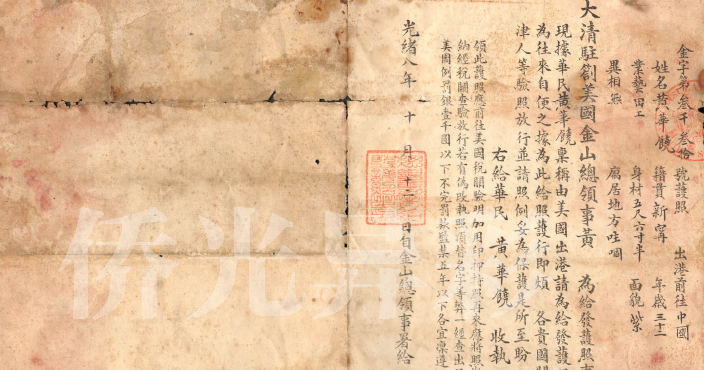 金字第叁千叁拾 號護照 出港前往中國
姓名黃華饒 籍貫新甯 年歲三十二
業藝田工 身材五尺六寸半 面貌紫
異相無 寓居地方
大清駐劄美國金山總領事黃 為給發護照事
現據華民黃華饒稟稱由美國出港請為給發護
為往來自便之據為此給照護行即煩 各貴國關
津人等驗照放行並請照例妥為保護是所至盼
右給華民 黃華饒 收執
領此護照應前往美國稅關驗明加用印 持照再來應將照
納經稅關查驗放行若有偽改執照項替名字等弊一經查出
美國例罰銀壹千圓以下不完罰款監禁五年以下各宜稟遵
光緒八年 十 月 十二 日自金山總領事署給
侨光昇